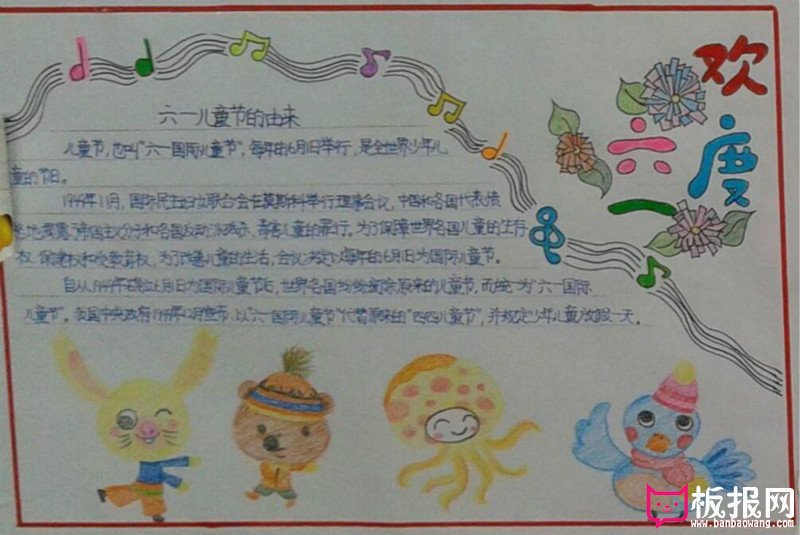 欢度
六一
六一儿童节的由来
儿童节，也叫“六一国际儿童节”，每年的6月1日举行，是全世界少年儿
童的节日。
1949年11月，国际民主妇女联合会在莫斯科举行理事会议，中国和各国代表愤
怒地揭露帝国主义分子和各国反动派残杀、毒害儿童的罪行。为了保障世界各国儿童的生存
权、保健权和受教育权，为了改善儿童的生活，会议决定以每年的6月1日为国际儿童节。
自从1949年确立6月1日为国际儿童节后，世界各国纷纷废除原来的儿童节，而统一为“六一国际
儿童节”。我国中央政府1949年12月宣布，以“六一国际儿童节”代替原来的“四四儿童节”，并规定少年儿童放假一天。
板报网
www.banbaowang.com